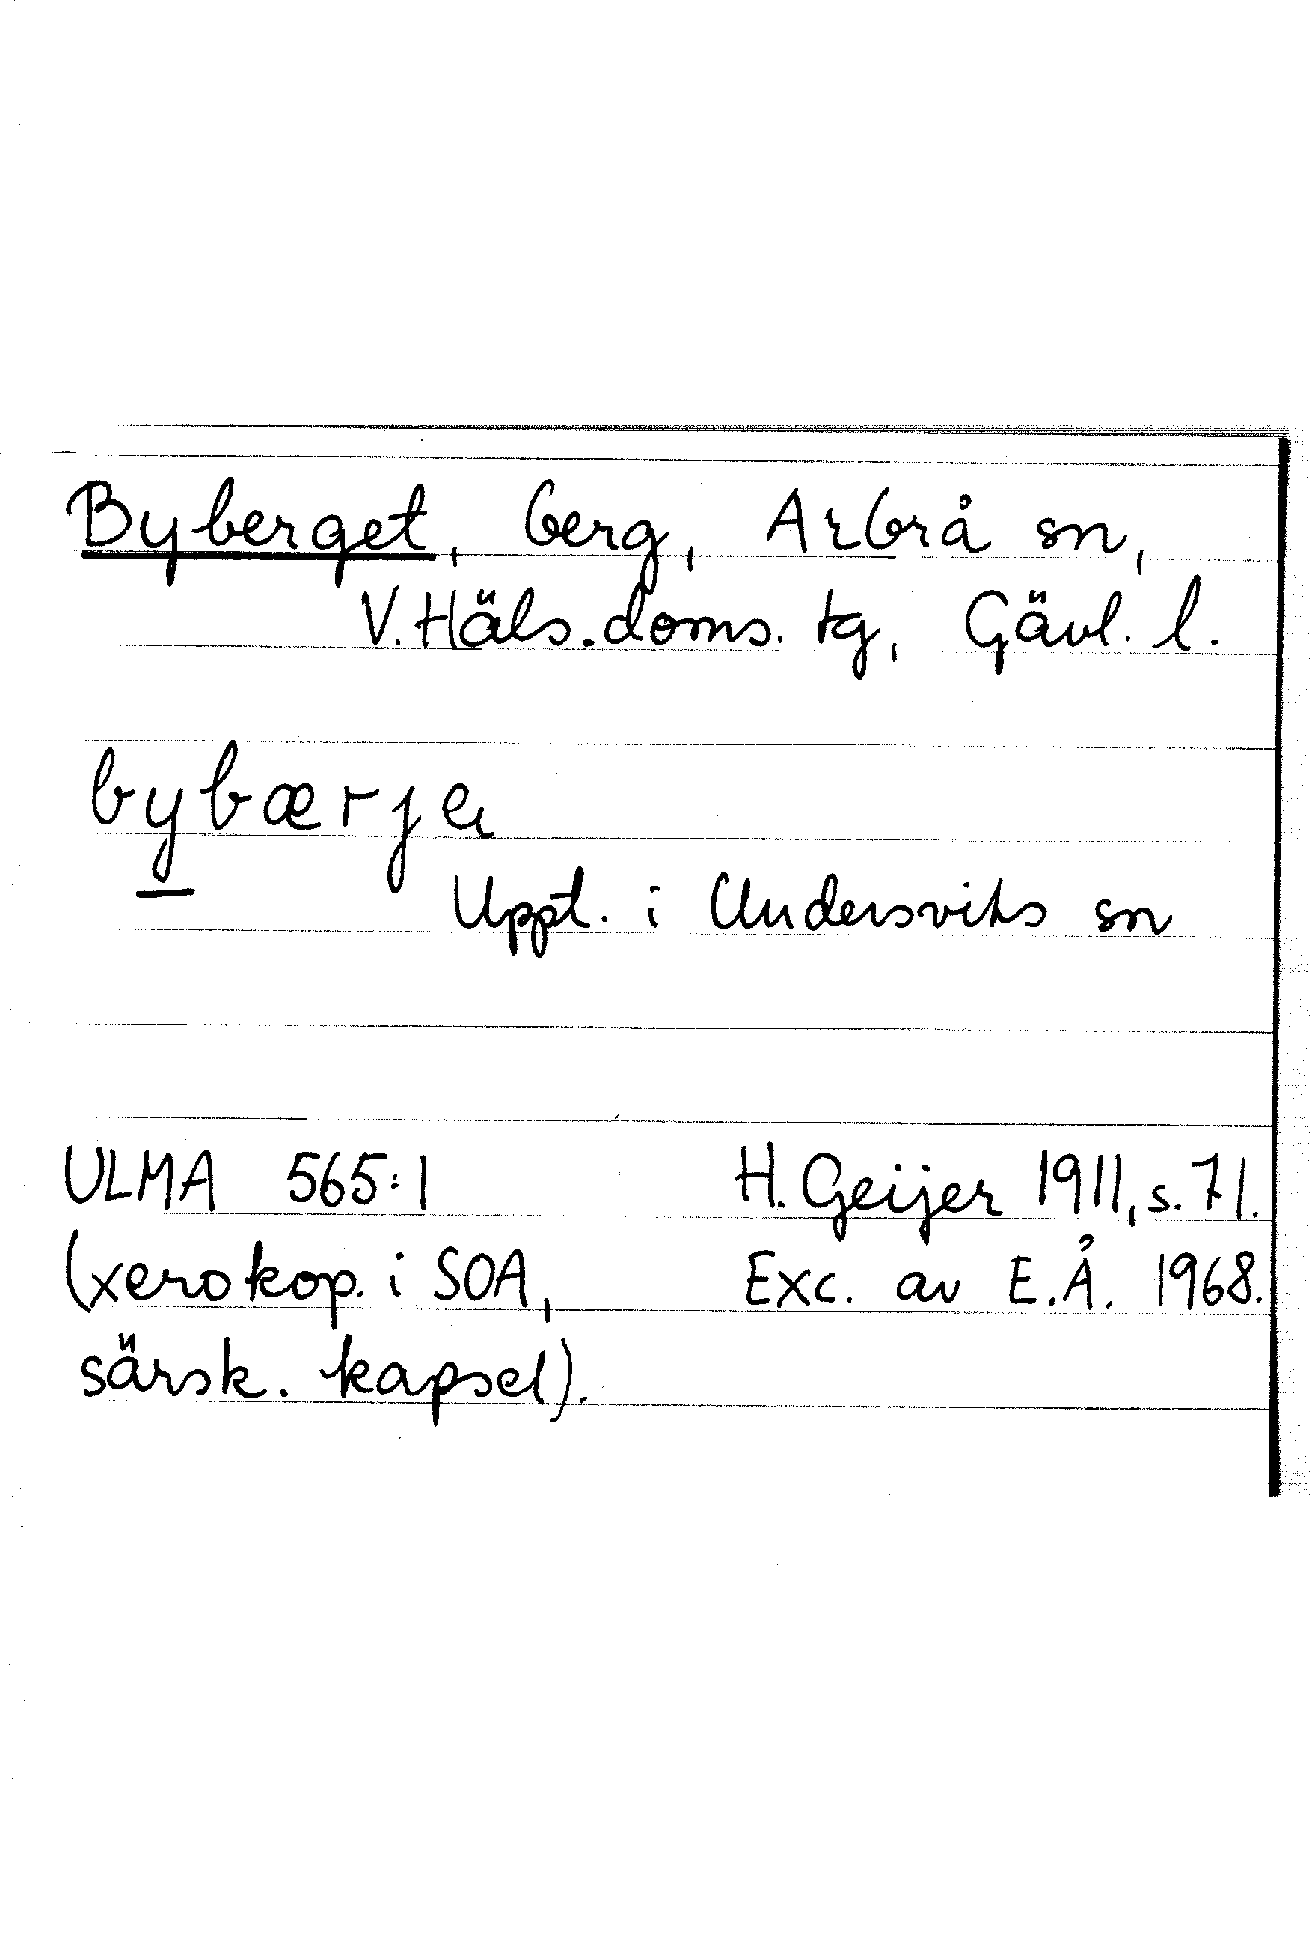 Byberget, berg, Arbrå sn,
V. Häls. doms. tg, Gävl. l.
bybærje
Uppt. i Undersviks sn
ULMA 565:1 H. Geijer 1911, s. 71.
(xerokop. i SOA, Exc. av E.Å. 1968.
särsk. kapsel).